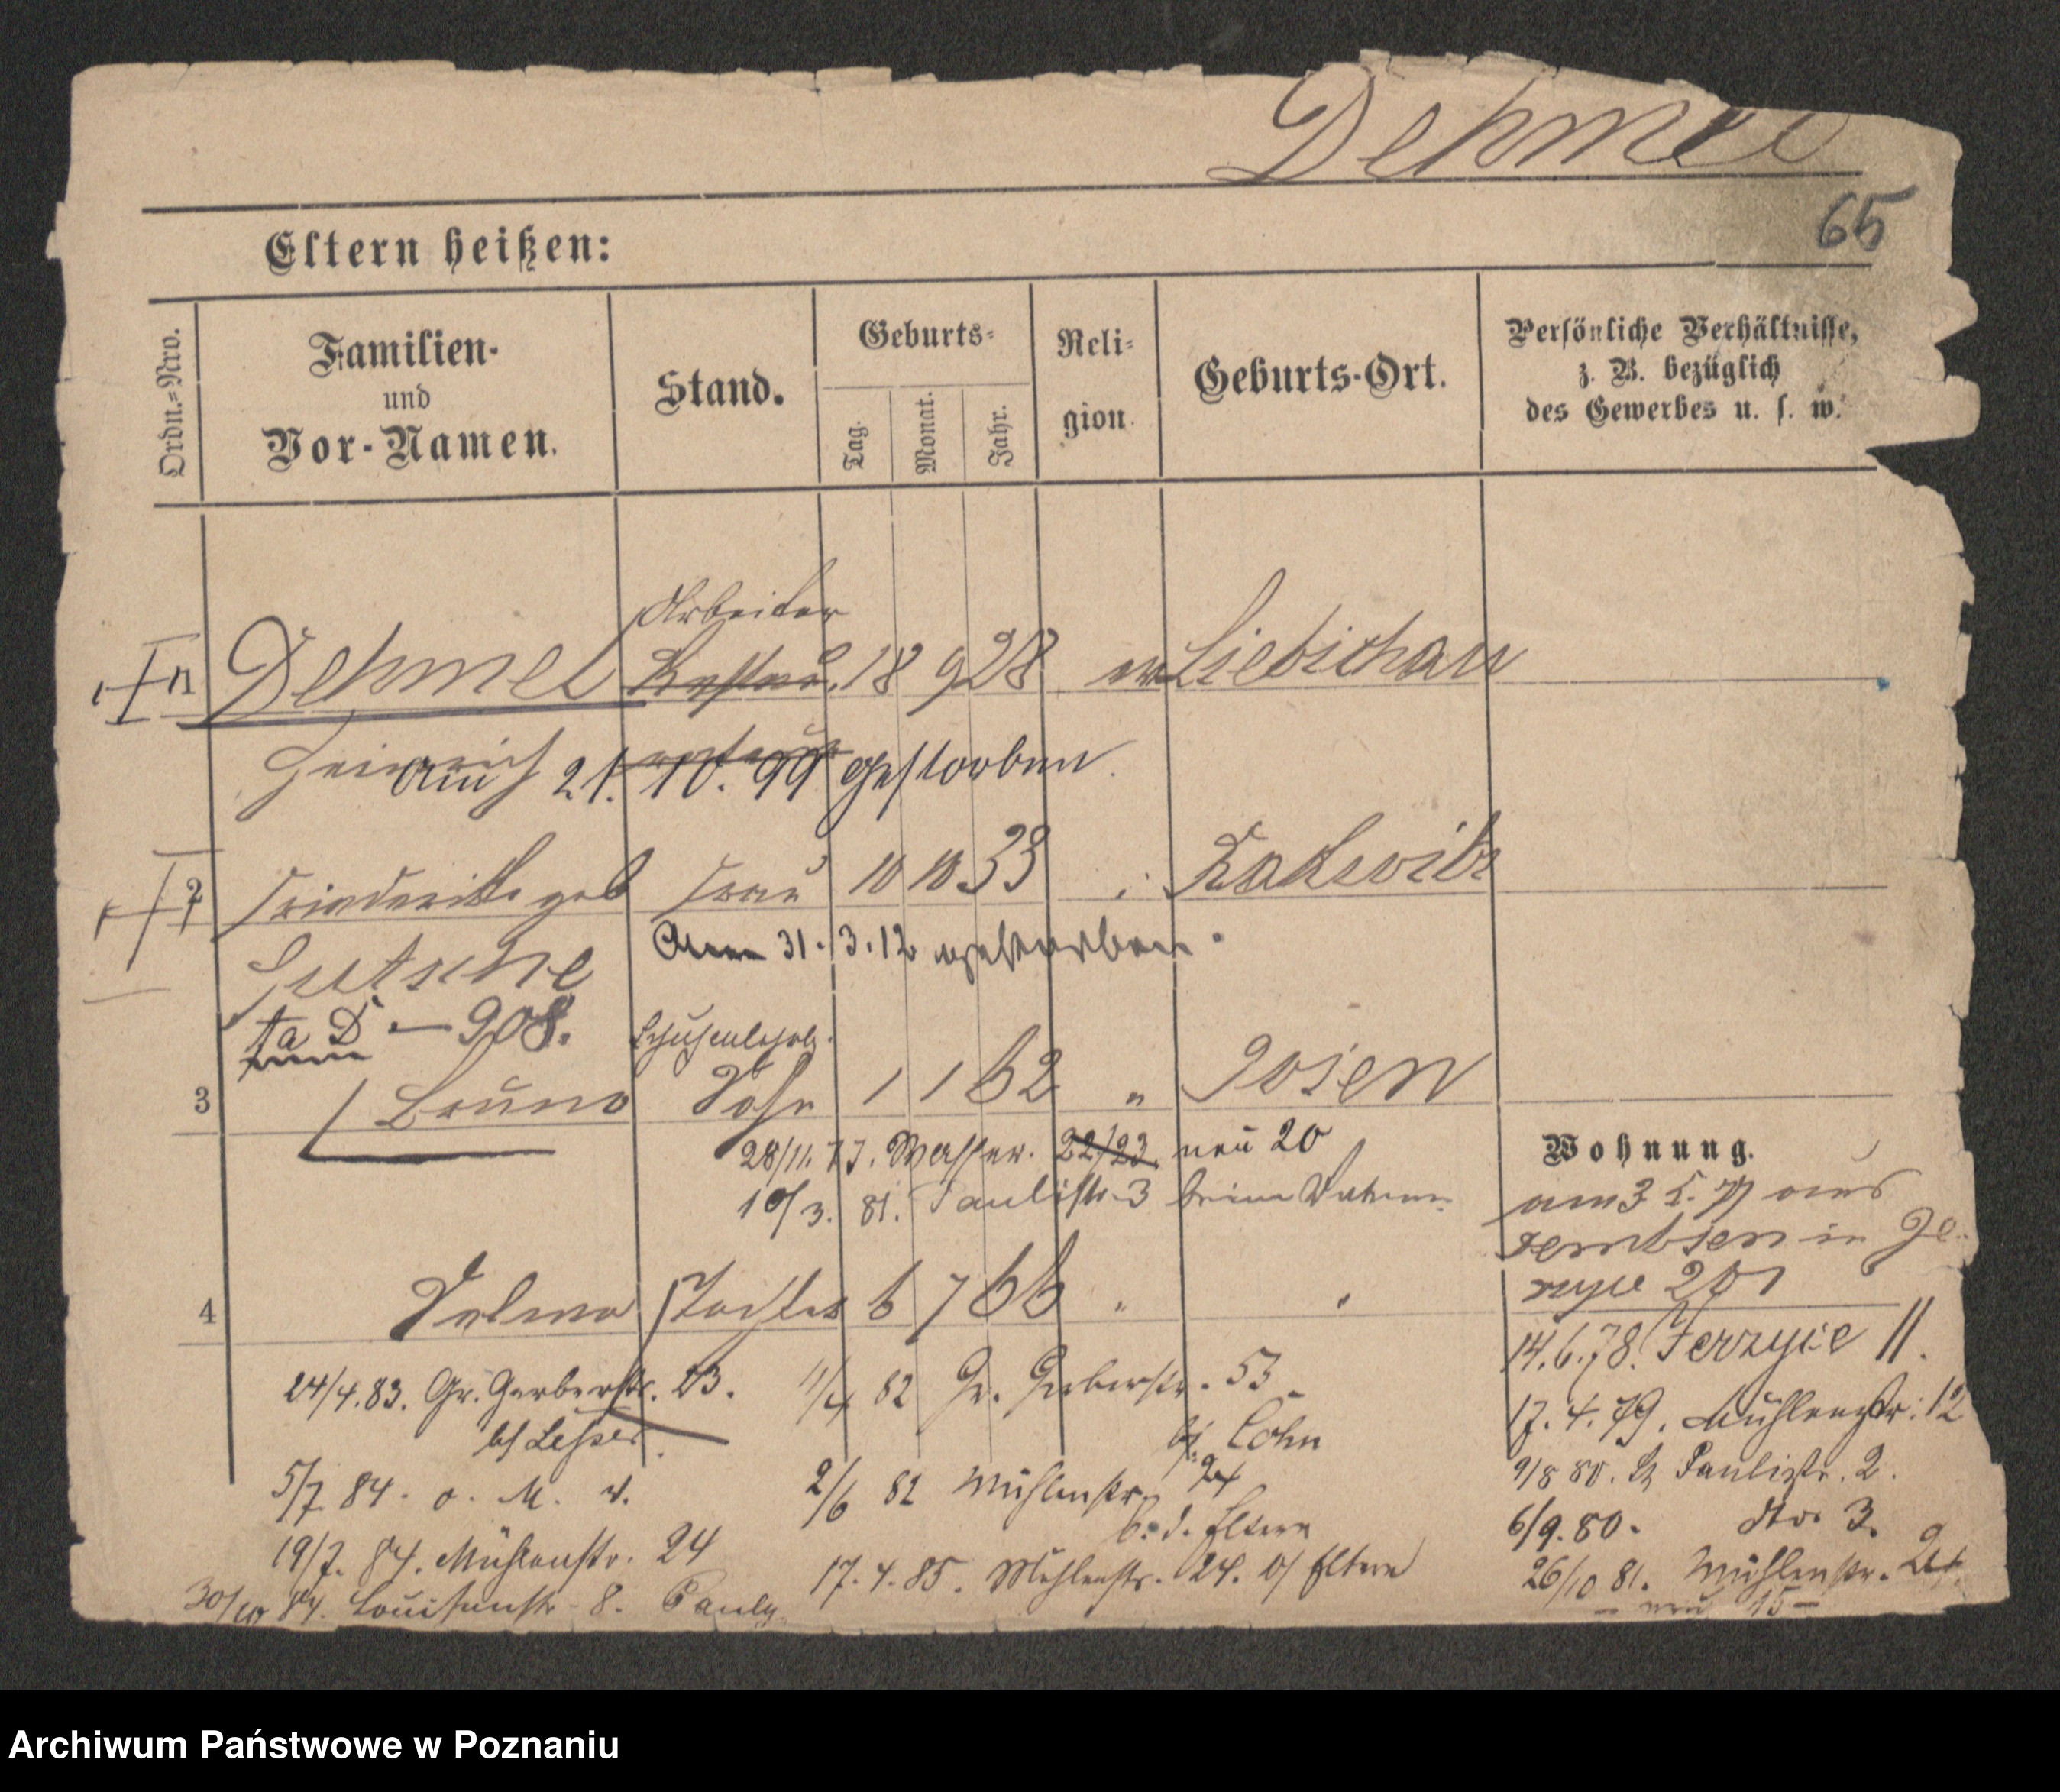 Dehmel
65
Eltern heißen:
Ordn.-Nro.
Familien-
und
Vor-Namen.
Stand.
Geburts-
Tag.
Monat.
Jahr.
Reli-
gion
Geburts-Ort.
Persönliche Verhältnisse,
z. B. bezüglich
des Gewerbes u. s. w.
Arbeiter
Dehmel 18 9 28 Liebichau
Heinrich
am 21. 10. 99 gestorben.
2 Friederike geb Frau 10 10 33 Rackwitz
Am 31. 3. 12 gestorben.
Gutsche
D — 908.
3 Bruno Sohn 1 1 62 " Posen
28/11. 77. Wasserstr. 22/23. neu 20
10/3. 81. Paulistr. 3 beim Vater
Wohnung.
am 3 5. 77 aus
Dembsen in Je-
rzyce 201
4 Selma Tochter 6 7 66 " "
14. 6. 78. Jerzyce 11.
17. 4. 79. Mühlenstr. 12
9/8 80. Paulistr. 2.
6/9. 80. dto 3.
26/10 81. Mühlenstr. 24
– neu 15 –
24/4. 83. Gr. Gerberstr. 23.
b/ Lesser.
5/7 84. o. M. v.
19/7. 84. Mühlenstr. 24
30/10 84. Louisenstr. 8. Pauly
11/4 82 Gr. Gerberstr. 53
b/ Cohn
2/6 82 Mühlenstr. 24
b. d. Eltern
17. 4. 85. Mühlenstr. 24. b/ Eltern
Archiwum Państwowe w Poznaniu